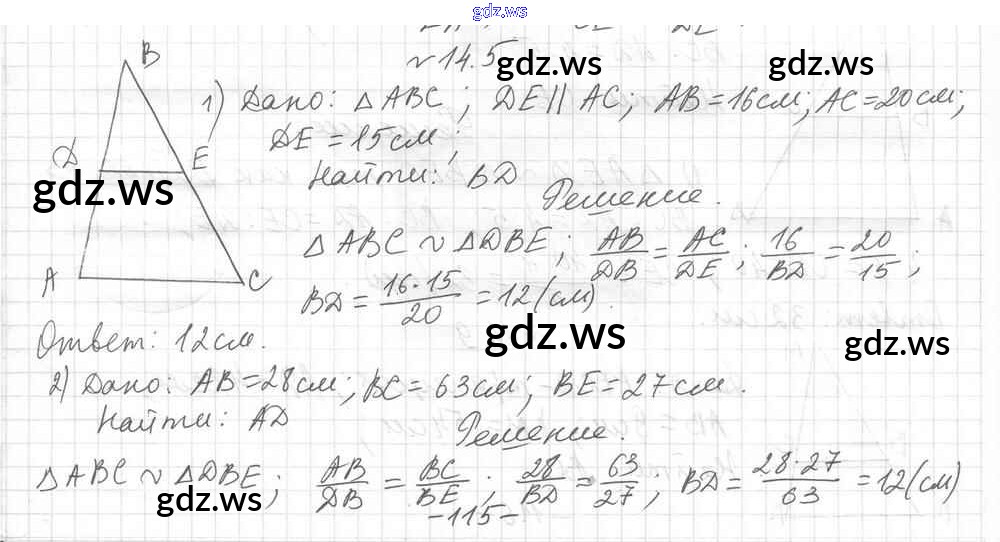 gdz.ws
№14.5
gdz.ws gdz.ws
B
1) Дано: △ABC; DE || AC; AB=16см; AC=20см;
DE=15см;
D E
Найти: BD
gdz.ws
Решение.
△ABC ~ △DBE; AB/DB = AC/DE; 16/BD = 20/15;
A C
BD = 16·15/20 = 12(см).
gdz.ws gdz.ws
Ответ: 12см.
2) Дано: AB=28см; BC=63см; BE=27см.
Найти: AD
Решение.
△ABC ~ △DBE; AB/DB = BC/BE; 28/BD = 63/27; BD = 28·27/63 = 12(см)
gdz.ws gdz.ws
-115-